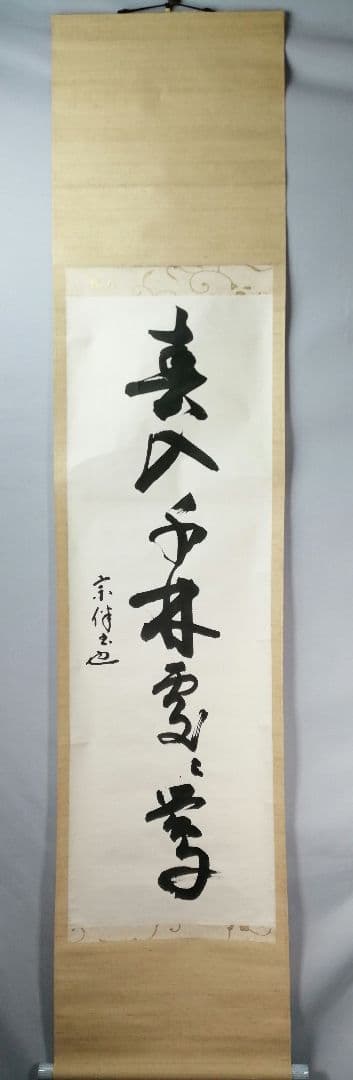 春入千林處〻鶯
宗伴書